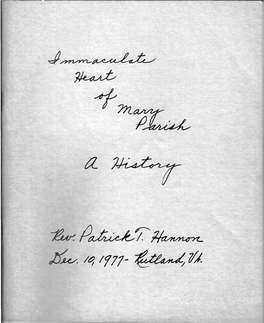 Immaculate
Heart
of
Mary
Parish
A History
Rev. Patrick T. Hannon
Dec. 10, 1977 - Rutland, Vt.